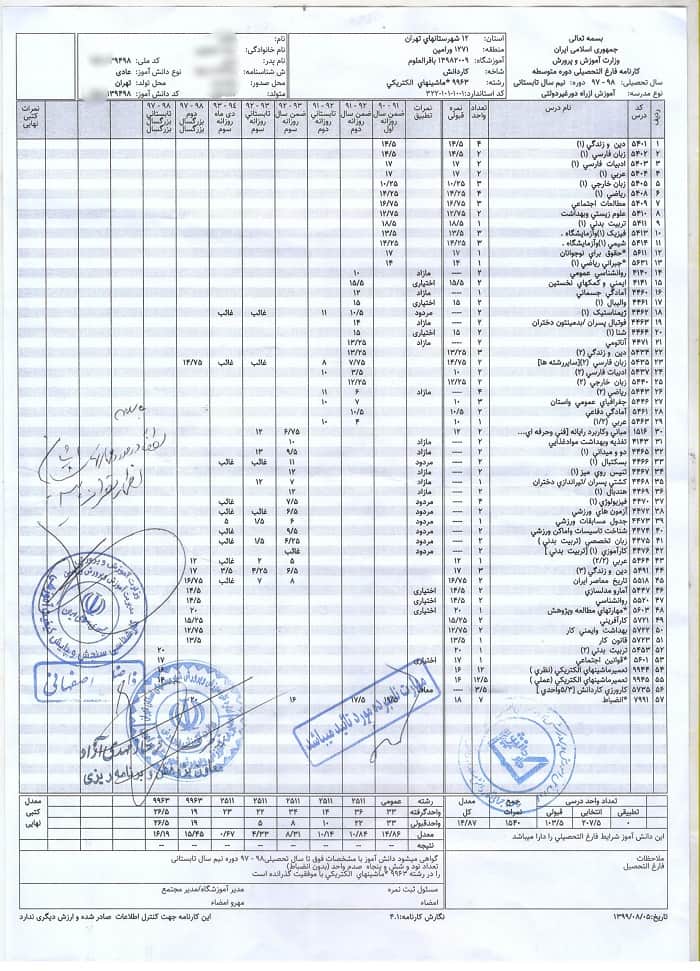 بسمه تعالی
جمهوری اسلامی ایران
وزارت آموزش و پرورش
کارنامه فارغ التحصیلی دوره متوسطه
سال تحصیلی: ۹۸ - ۹۷ دوره: نیم سال تابستانی
نوع مدرسه: آموزش ازراه دورغیردولتی
استان: ۱۲ شهرستانهای تهران
منطقه: ۱۲۷۱ ورامین
آموزشگاه: ۱۳۹۸۲۰۰۹ باقرالعلوم
شاخه: کاردانش
رشته: ۹۹۶۳ *ماشینهای الکتریکی
کد استاندارد: ۱-۱۰۰-۱۰۱-۳۲۲
نام:
نام خانوادگی:
نام پدر:
ش شناسنامه:
محل صدور:
متولد:
کد ملی:
نوع دانش آموز: عادی
محل: تهران
کد دانش آموز:
ردیف کد درس نام درس تعداد واحد نمره قبولی نمرات تطبیق
۱ ۵۴۰۱ دین و زندگی (۱) ۴ ۱۴/۵ ۱۴/۵
۲ ۵۴۰۲ زبان فارسی (۱) ۲ ۱۴/۵ ۱۴/۵
۳ ۵۴۰۳ ادبیات فارسی (۱) ۲ ۱۷ ۱۷
۴ ۵۴۰۴ عربی (۱) ۲ ۱۷ ۱۷
۵ ۵۴۰۵ زبان خارجی (۱) ۳ ۱۰/۲۵ ۱۰/۲۵
۶ ۵۴۰۸ ریاضی (۱) ۴ ۱۴/۲۵ ۱۴/۲۵
۷ ۵۴۰۹ مطالعات اجتماعی ۳ ۱۶/۷۵ ۱۶/۷۵
۸ ۵۴۱۰ علوم زیستی وبهداشت ۲ ۱۲/۷۵ ۱۲/۷۵
۹ ۵۴۱۱ تربیت بدنی (۱) ۲ ۱۸/۵ ۱۸/۵
۱۰ ۵۴۱۳ فیزیک (۱)وآزمایشگاه . ۳ ۱۳/۵ ۱۳/۵
۱۱ ۵۴۱۴ شیمی (۱)وآزمایشگاه . ۳ ۱۴/۲۵ ۱۴/۲۵
۱۲ ۵۶۱۱ *حقوق برای نوجوانان ۱ ۱۷ ۱۷
۱۳ ۵۶۳۱ *جبرانی ریاضی (۱) ۱ ۱۴ ۱۴
۱۴ ۴۱۴۰ روانشناسی عمومی ۲ ---- مازاد ۱۰
۱۵ ۴۱۴۱ ایمنی و کمکهای نخستین ۲ ۱۵/۵ اختیاری ۱۵/۵
۱۶ ۴۴۶۰ آمادگی جسمانی ۲ ---- مازاد ۱۲
۱۷ ۴۴۶۱ والیبال (۱) ۲ ۱۵ اختیاری ۱۵
۱۸ ۴۴۶۲ ژیمناستیک (۱) ۲ ---- مردود ۱۰/۵ ۱۱ غائب غائب
۱۹ ۴۴۶۳ فوتبال پسران /بدمینتون دختران ۲ ---- مازاد ۱۴
۲۰ ۴۴۶۴ شنا (۱) ۲ ۱۵ اختیاری ۱۵
۲۱ ۴۴۷۱ آناتومی ۲ ---- مازاد ۱۳/۲۵
۲۲ ۵۴۳۴ دین و زندگی (۲) ۳ ۱۳/۲۵ ۱۳/۲۵
۲۳ ۵۴۳۵ زبان فارسی (۲)[سایررشته ها] ۲ ۱۴/۷۵ ۷/۷۵ ۸ غائب غائب ۱۴/۷۵
۲۴ ۵۴۳۷ ادبیات فارسی (۲) ۲ ۱۰ ۳/۵ ۱۰
۲۵ ۵۴۴۰ زبان خارجی (۲) ۲ ۱۲/۲۵ ۱۲/۲۵
۲۶ ۵۴۴۳ ریاضی (۲) ۴ ---- مازاد ۶ ۱۱
۲۷ ۵۴۴۶ جغرافیای عمومی واستان ۳ ۱۰ ۷ ۱۰
۲۸ ۵۴۶۱ آمادگی دفاعی ۲ ۱۰/۵ ۱۰/۵
۲۹ ۵۴۶۳ عربی (۱/۲) ۱ ۱۰ ۴ ۱۰
۳۰ ۱۵۱۶ مبانی وکاربرد رایانه [فنی وحرفه ای... ۲ ۱۲ ۶/۷۵ ۱۲
۳۱ ۴۱۴۳ تغذیه وبهداشت موادغذایی ۲ ---- مازاد ۱۰
۳۲ ۴۴۶۵ دو و میدانی (۱) ۲ ---- مازاد ۹/۵ ۱۳
۳۳ ۴۴۶۶ بسکتبال (۱) ۲ ---- مردود ۱۱ غائب غائب
۳۴ ۴۴۶۷ تنیس روی میز (۱) ۲ ---- مازاد ۱۲
۳۵ ۴۴۶۸ کشتی پسران /تیراندازی دختران ۱ ---- مازاد ۷ ۱۲
۳۶ ۴۴۶۹ هندبال (۱) ۲ ---- مازاد ۱۲
۳۷ ۴۴۷۰ فیزیولوژی (۱) ۴ ---- مردود ۷/۵ غائب
۳۸ ۴۴۷۲ آزمون های ورزشی ۲ ---- مردود ۶/۵ غائب غائب
۳۹ ۴۴۷۳ جدول مسابقات ورزشی ۱ ---- مردود ۶ ۱/۵ ۵
۴۰ ۴۴۷۴ شناخت تاسیسات واماکن ورزشی ۲ ---- مردود غائب غائب
۴۱ ۴۴۷۵ زبان تخصصی (تربیت بدنی ) ۲ ---- مردود ۶/۲۵ ۱/۵ غائب
۴۲ ۴۴۷۶ کارآموزی (۱) [تربیت بدنی ] ۲ ---- مردود غائب
۴۳ ۵۴۶۴ عربی (۲/۲) ۱ ۱۲ ۵ ۲ غائب ۱۲
۴۴ ۵۴۹۱ دین و زندگی (۳) ۳ ۱۷ ۶/۵ ۴/۲۵ ۳/۵ ۱۷
۴۵ ۵۵۱۸ تاریخ معاصر ایران ۲ ۱۶/۷۵ ۸ ۷ غائب ۱۶/۷۵
۴۶ ۵۵۱۷ آمارو مدلسازی ۲ ۱۴/۵ اختیاری ۱۴/۵
۴۷ ۵۵۲۰ روانشناسی ۲ ۱۴/۵ اختیاری ۱۴/۵
۴۸ ۵۶۰۳ *مهارتهای مطالعه وپژوهش ۱ ۲۰ اختیاری ۲۰
۴۹ ۵۷۲۱ کارآفرینی ۲ ۱۵/۲۵ ۱۵/۲۵
۵۰ ۵۷۲۲ بهداشت وایمنی کار ۲ ۱۲/۷۵ ۱۲/۷۵
۵۱ ۵۷۲۳ قانون کار ۱ ۱۳/۵ ۱۳/۵
۵۲ ۵۴۵۳ تربیت بدنی (۲) ۱ ۲۰ ۲۰
۵۳ ۵۶۰۱ *قوانین اجتماعی ۱ ۱۷ اختیاری ۱۷
۵۴ ۹۹۳۴ تعمیرماشینهای الکتریکی (نظری ) ۱۲ ۱۶
۵۵ ۹۹۴۵ تعمیرماشینهای الکتریکی (عملی ) ۱۲/۵ ۱۴
۵۶ ۵۷۳۵ کارورزی کاردانش [۳/۵واحدی ] ۳/۵
۵۷ ۷۹۹۱ *انضباط ۷ ۱۸ ۱۷/۵ ۱۶ ۲۰
مهارت نامبرده مورد تائید میباشد
اصفهانی
معاون آموزش و برنامه ریزی
تعداد واحد درسی جمع نمرات معدل کل
تطبیقی انتخابی قبولی
۰ ۲۰۷/۵ ۱۰۳/۵ ۱۵۴۰ ۱۴/۸۷
این دانش آموز شرایط فارغ التحصیلی را دارا میباشد
رشته عمومی ۲۵۱۱ ۲۵۱۱ ۲۵۱۱ ۲۵۱۱ ۲۵۱۱ ۹۹۶۳ ۹۹۶۳
واحدگرفته ۳۳ ۳۶ ۱۴ ۳۴ ۲۲ ۲۲ ۱۹ ۲۶/۵
واحدقبولی ۳۳ ۲۲ ۱۰ ۸ ۵ ۰ ۱۹ ۲۶/۵
معدل ۱۴/۸۶ ۱۰/۸۴ ۱۰/۱۴ ۸/۳۱ ۴/۳۳ ۰/۶۷ ۱۵/۴۵ ۱۶/۱۹
نتیجه -- -- -- -- -- -- -- --
معدل کتبی نهایی
ملاحظات
فارغ التحصیل
گواهی میشود دانش آموز با مشخصات فوق تا سال تحصیلی۹۸ - ۹۷ دوره نیم سال تابستانی
تعداد نود و شش و پنجاه صدم واحد (بدون انضباط)
را در رشته ۹۹۶۳ *ماشینهای الکتریکی با موفقیت گذرانده است
مسئول ثبت نمره
امضاء
مدیر آموزشگاه/مدیر مجتمع
مهرو امضاء
تاریخ:۱۳۹۹/۰۸/۰۵
نگارش کارنامه:۴.۱
این کارنامه جهت کنترل اطلاعات صادر شده و ارزش دیگری ندارد